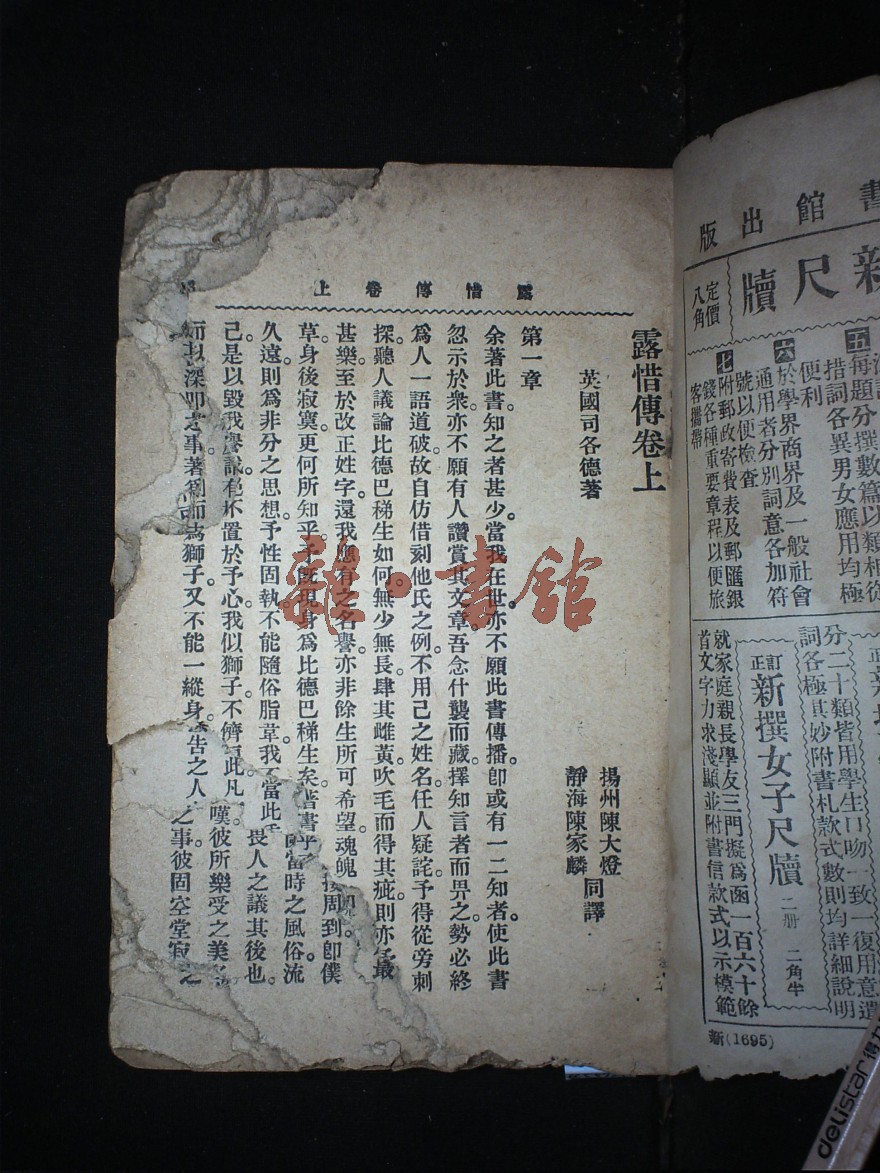 書館出版
新尺牘
定價八角
五
每題分撰數篇以類相從
措詞各異男女應用均極
便利
六
於學界商界及一般社會
通用者分別詞意各加符
號以便檢查
七
附郵政寄費表及郵匯銀
錢各種重要章程以便旅
客攜帶
分二十類皆用學生口吻一致一復用意遣
詞各極其妙附書札款式數則均詳細說明
訂正
新撰女子尺牘
二册 二角半
就家庭親長學友三門擬爲函一百六十餘
首文字力求淺顯並附書信款式以示模範
新(1695)
露惜傳卷上
露惜傳卷上
英國司各德著
揚州陳大燈
靜海陳家麟
同譯
第一章
余著此書。知之者甚少。當我在世。亦不願此書傳播。卽或有一二知者。使此書
忽示於衆。亦不願有人讚賞其文章。吾念什襲而藏。擇知言者而畀之。勢必終
爲人一語道破。故自仿借刻他氏之例。不用己之姓名。任人疑詫。予得從旁刺
探。聽人議論比德巴梯生如何。無少無長。肆其雌黃。吹毛而得其疵。則亦
甚樂。至於改正姓字。還我應有之名譽。亦非餘生所可希望。魂魄
草。身後寂寞。更何所知乎。予既現身爲比德巴梯生矣。
周到。卽僕
久遠。則爲非分之思想。予性固執。不能隨俗脂韋。我
當此
當時之風俗流
己。是以毀我譽
置於予心。我似獅子。不儕
此凡
畏人之議其後也。
深
事著
而爲獅子。又不能一縱身
告之人
嘆彼所樂受之美
之事。彼固空堂寂
雜·書館
delistar 得力